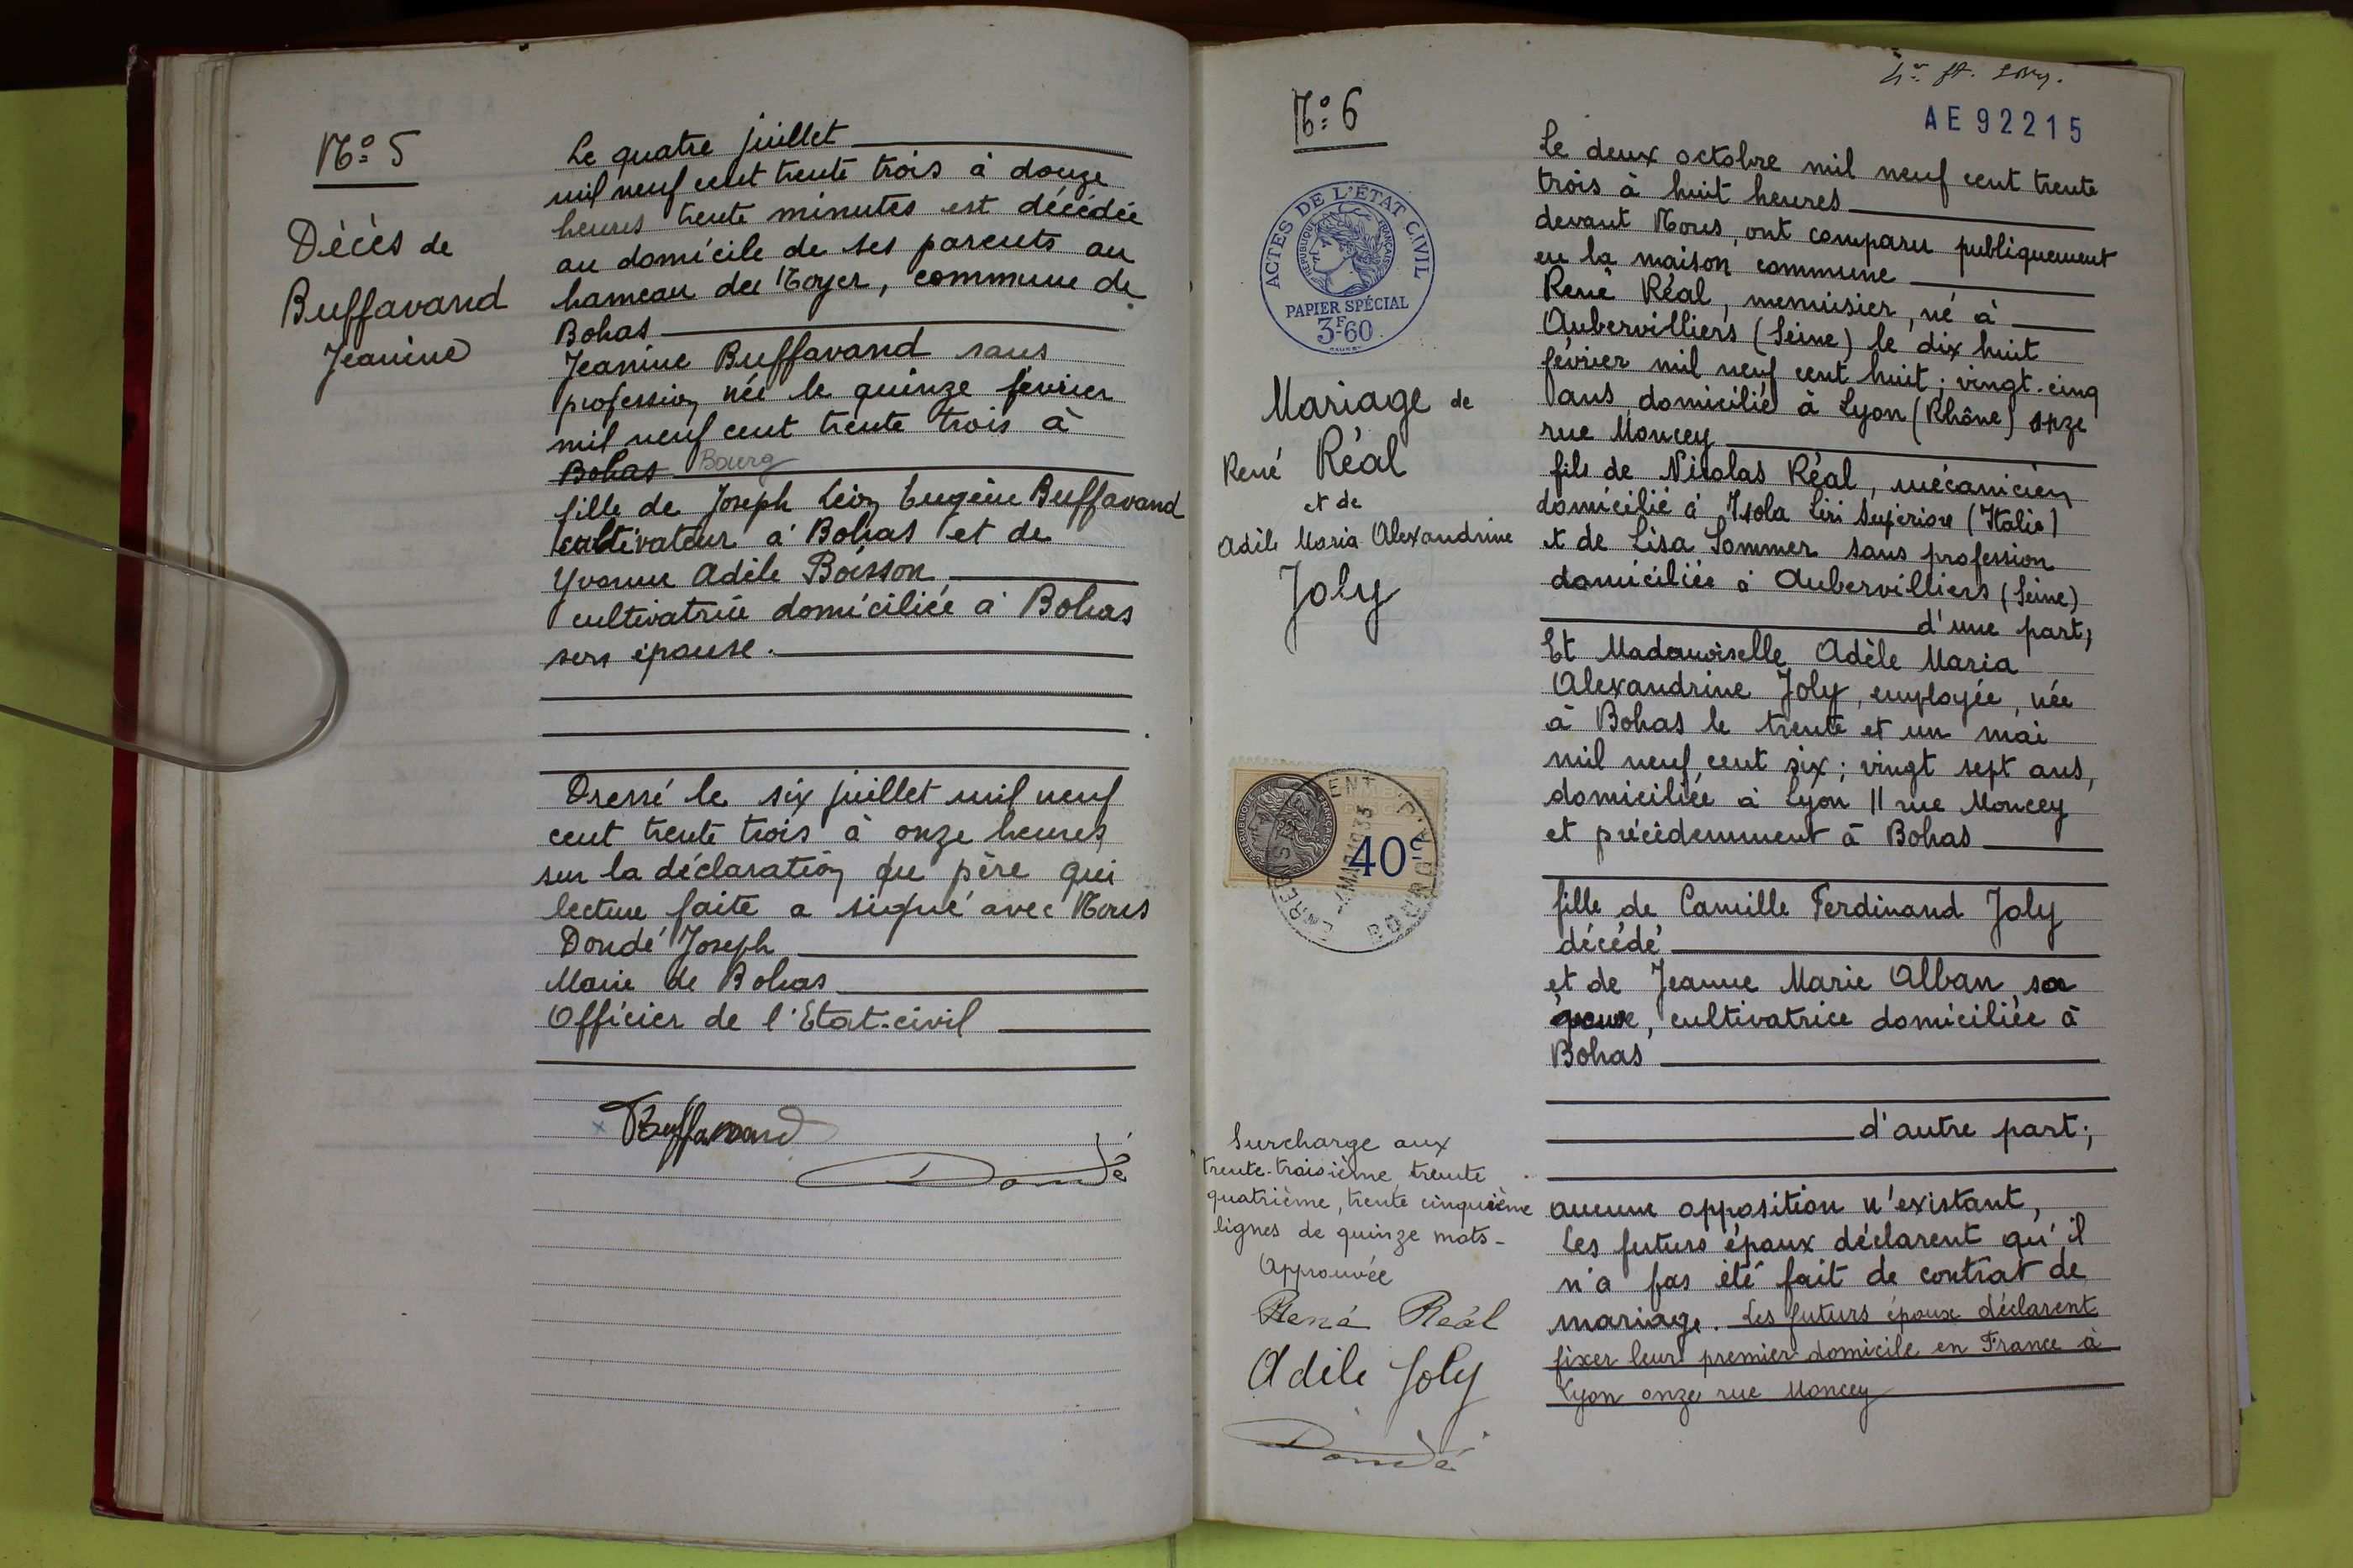 No: 5
Décès de
Buffavand
Jeanine
Le quatre juillet
mil neuf cent trente trois à douze
heures trente minutes est décédée
au domicile de ses parents au
hameau du Noyer, commune de
Bohas
Jeanine Buffavand sans
profession née le quinze février
mil neuf cent trente trois à
Bohas Bourg
fille de Joseph Léon Eugène Buffavand
cultivateur à Bohas et de
Yvonne Adèle Boisson
cultivatrice domiciliée à Bohas
son épouse.
Dressé le six juillet mil neuf
cent trente trois à onze heures
sur la déclaration du père qui
lecture faite a signé avec Nous
Dondé Joseph
Maire de Bohas
Officier de l'Etat-civil
Buffavand
Dondé
No: 6
ACTES DE L'ÉTAT CIVIL
RÉPUBLIQUE FRANÇAISE
PAPIER SPÉCIAL
3F-60
Mariage de
René Réal
et de
Adèle Maria Alexandrine
Joly
40c
ENREGISTREMENT
1933
BOURG
Surcharge aux
trente-troisième, trente
quatrième, trente cinquième
lignes de quinze mots-
Approuvée
René Réal
Adèle Joly
Dondé
AE92215
Le deux octobre mil neuf cent trente
trois à huit heures
devant Nous, ont comparu publiquement
en la maison commune
René Réal, menuisier, né à
Aubervilliers (Seine) le dix huit
février mil neuf cent huit; vingt-cinq
ans domicilié à Lyon (Rhône) onze
rue Moncey
fils de Nicolas Réal, mécanicien
domicilié à Isola Liri Superiore (Italie)
et de Lisa Sommer sans profession
domiciliée à Aubervilliers (Seine)
d'une part;
Et Mademoiselle Adèle Maria
Alexandrine Joly, employée, née
à Bohas le trente et un mai
mil neuf cent six; vingt sept ans,
domiciliée à Lyon 11 rue Moncey
et précédemment à Bohas
fille de Camille Ferdinand Joly
décédé
et de Jeanne Marie Alban, sa
épouse, cultivatrice domiciliée à
Bohas
d'autre part;
aucune opposition n'existant,
Les futurs époux déclarent qu'il
n'a pas été fait de contrat de
mariage. Les futurs époux déclarent
fixer leur premier domicile en France à
Lyon onze rue Moncey